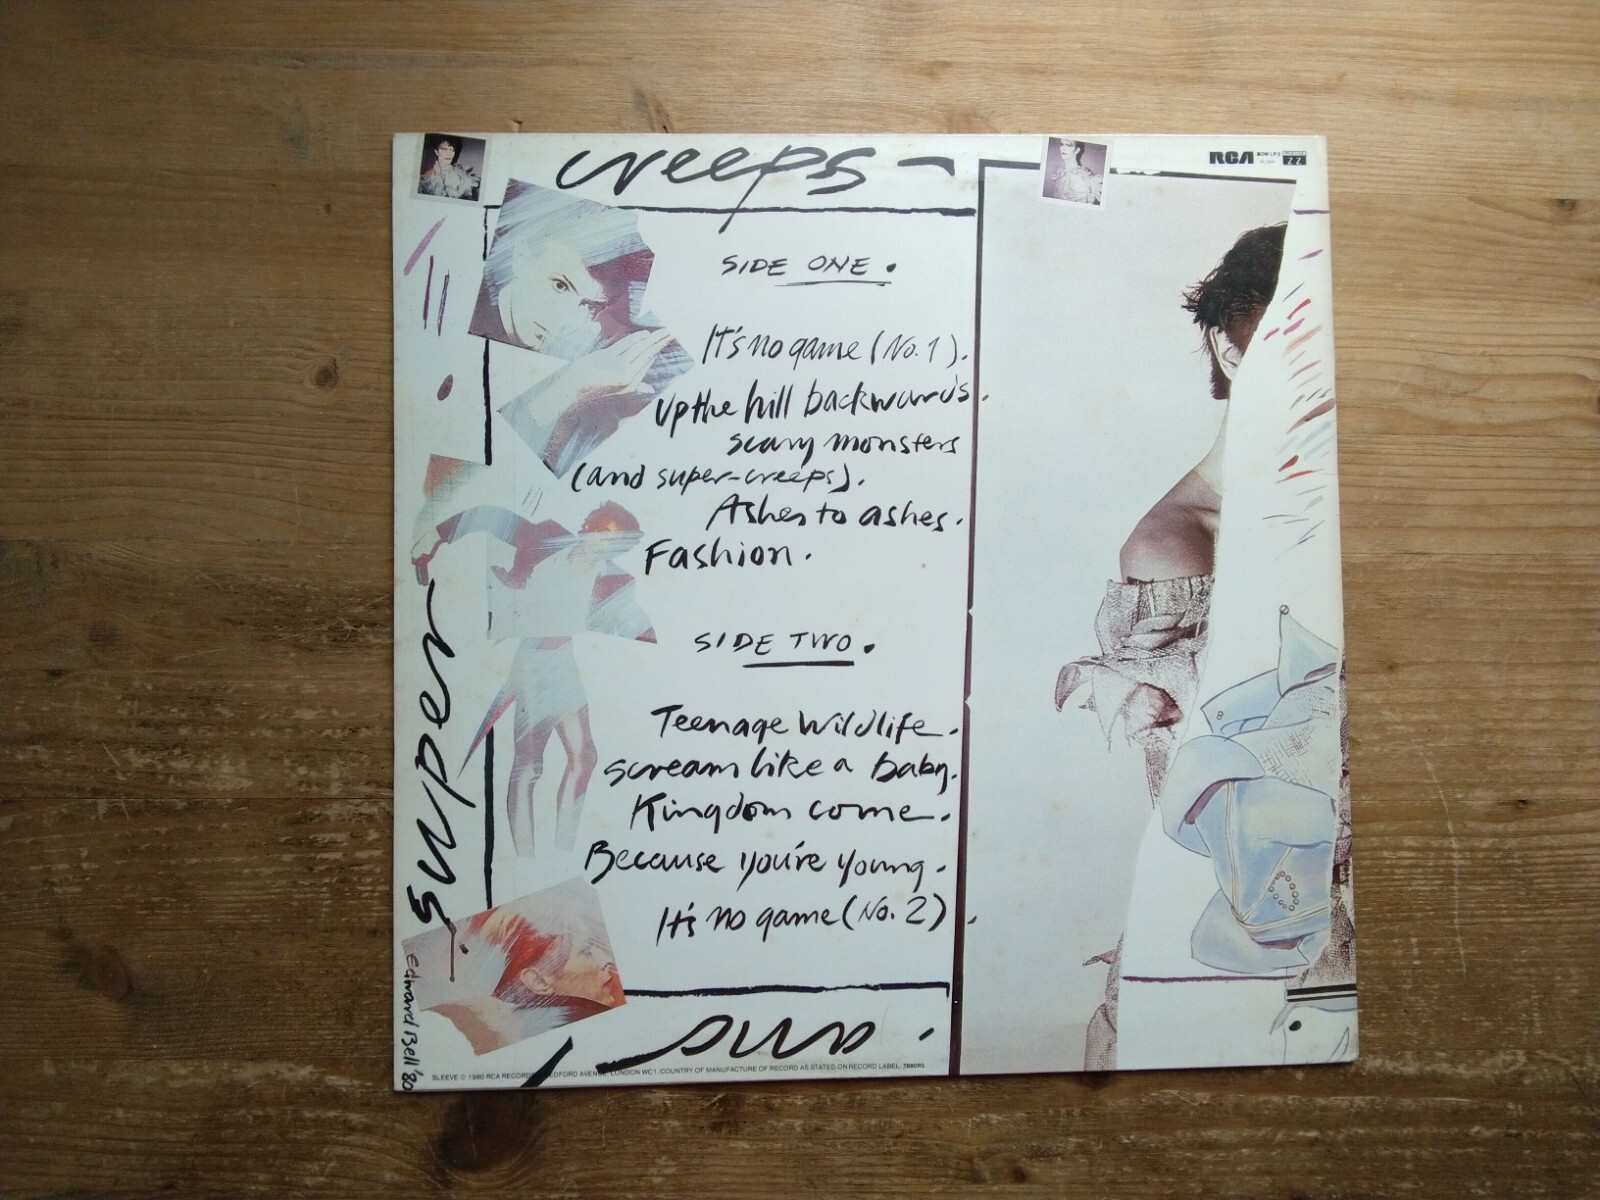 creeps
RCA BOW LP 2
ZZ
SIDE ONE.
It's no game (No. 1).
Up the hill backwards.
scary monsters
(and super-creeps).
Ashes to ashes.
Fashion.
SIDE TWO.
Teenage wildlife.
scream like a baby.
Kingdom come.
Because you're young.
It's no game (No. 2).
super
and
Edward Bell '80
SLEEVE © 1980 RCA RECORDS, BEDFORD AVENUE, LONDON WC1. COUNTRY OF MANUFACTURE OF RECORD AS STATED ON RECORD LABEL.